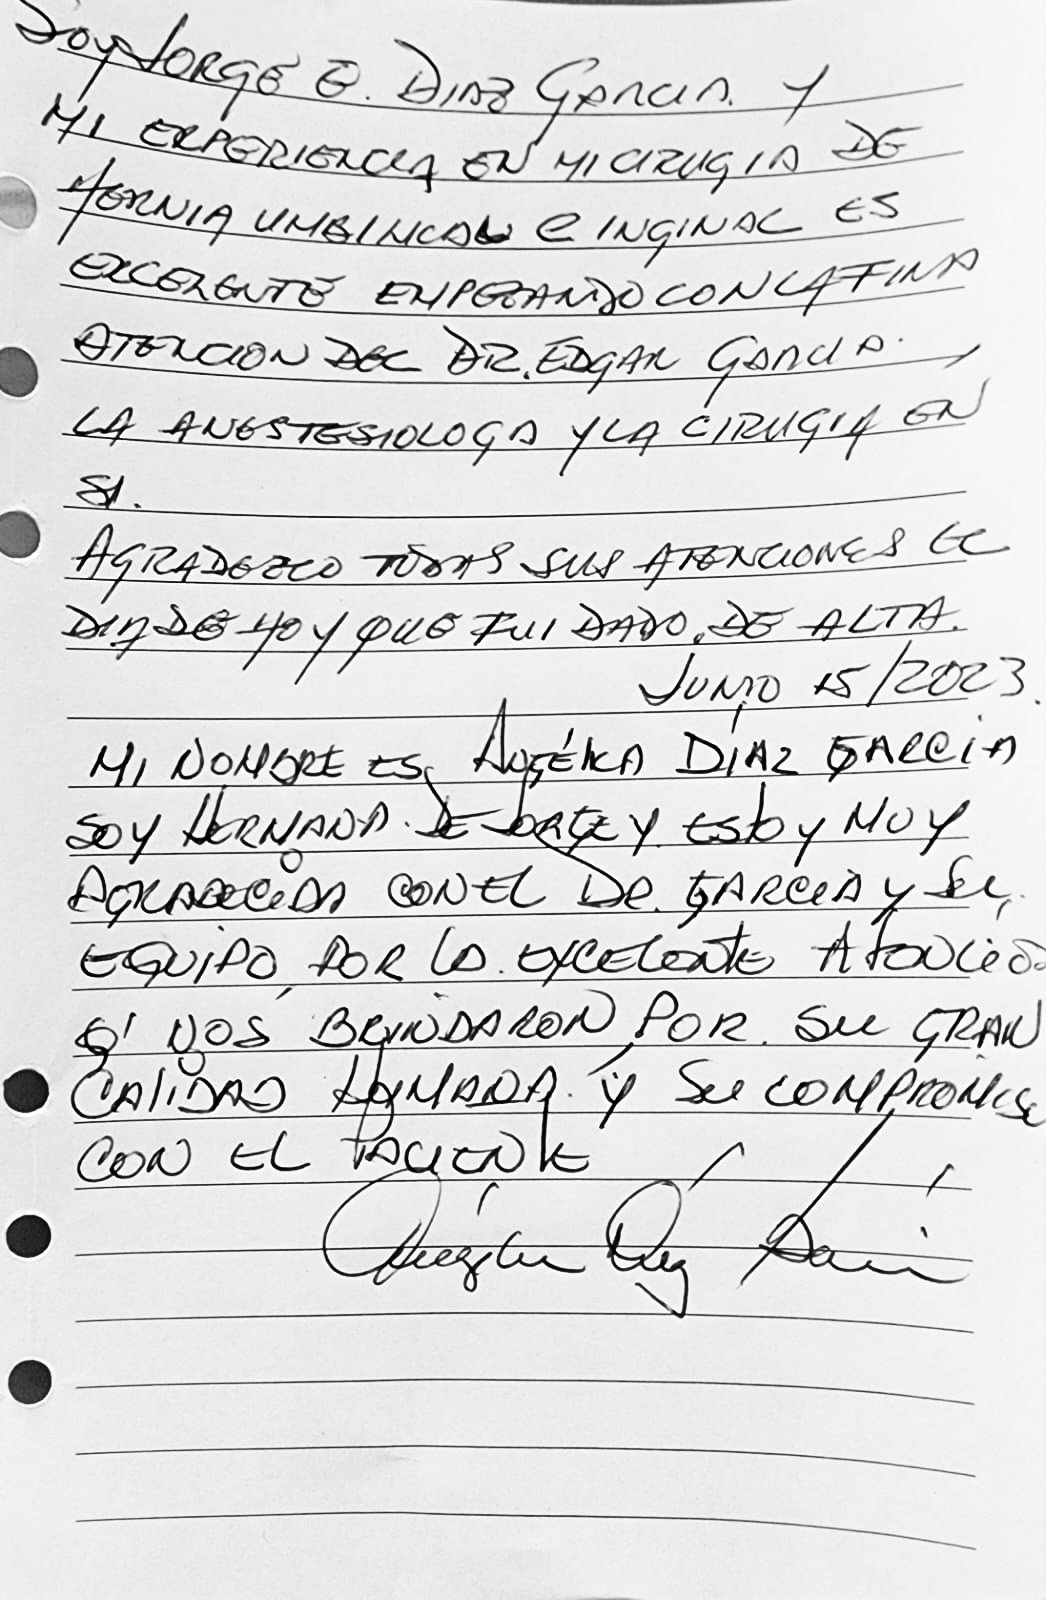 Soy JORGE E. DIAZ GARCIA Y
MI EXPERIENCIA EN MI CIRUGIA DE
HERNIA UMBINCAL E INGINAL ES
EXCERENTE EMPEZANDO CON LA FINA
ATENCION DEL DR. EDGAR GARCIA.
LA ANESTESIOLOGA Y LA CIRUGIA EN
SI.
AGRADEZCO TODAS SUS ATENCIONES EL
DIA DE HOY QUE FUI DADO DE ALTA.
JUNIO 15/2023.
MI NOMBRE ES ANGÉLICA DÍAZ GARCÍA
SOY HERMANA DE JORGE Y ESTOY MUY
AGRADECIDA CON EL DR. GARCIA Y SU
EQUIPO, POR LA EXCELENTE ATENCIÓN
Q' NOS BRINDARON, POR SU GRAN
CALIDAD HUMANA Y SU COMPROMISO
CON EL PACIENTE